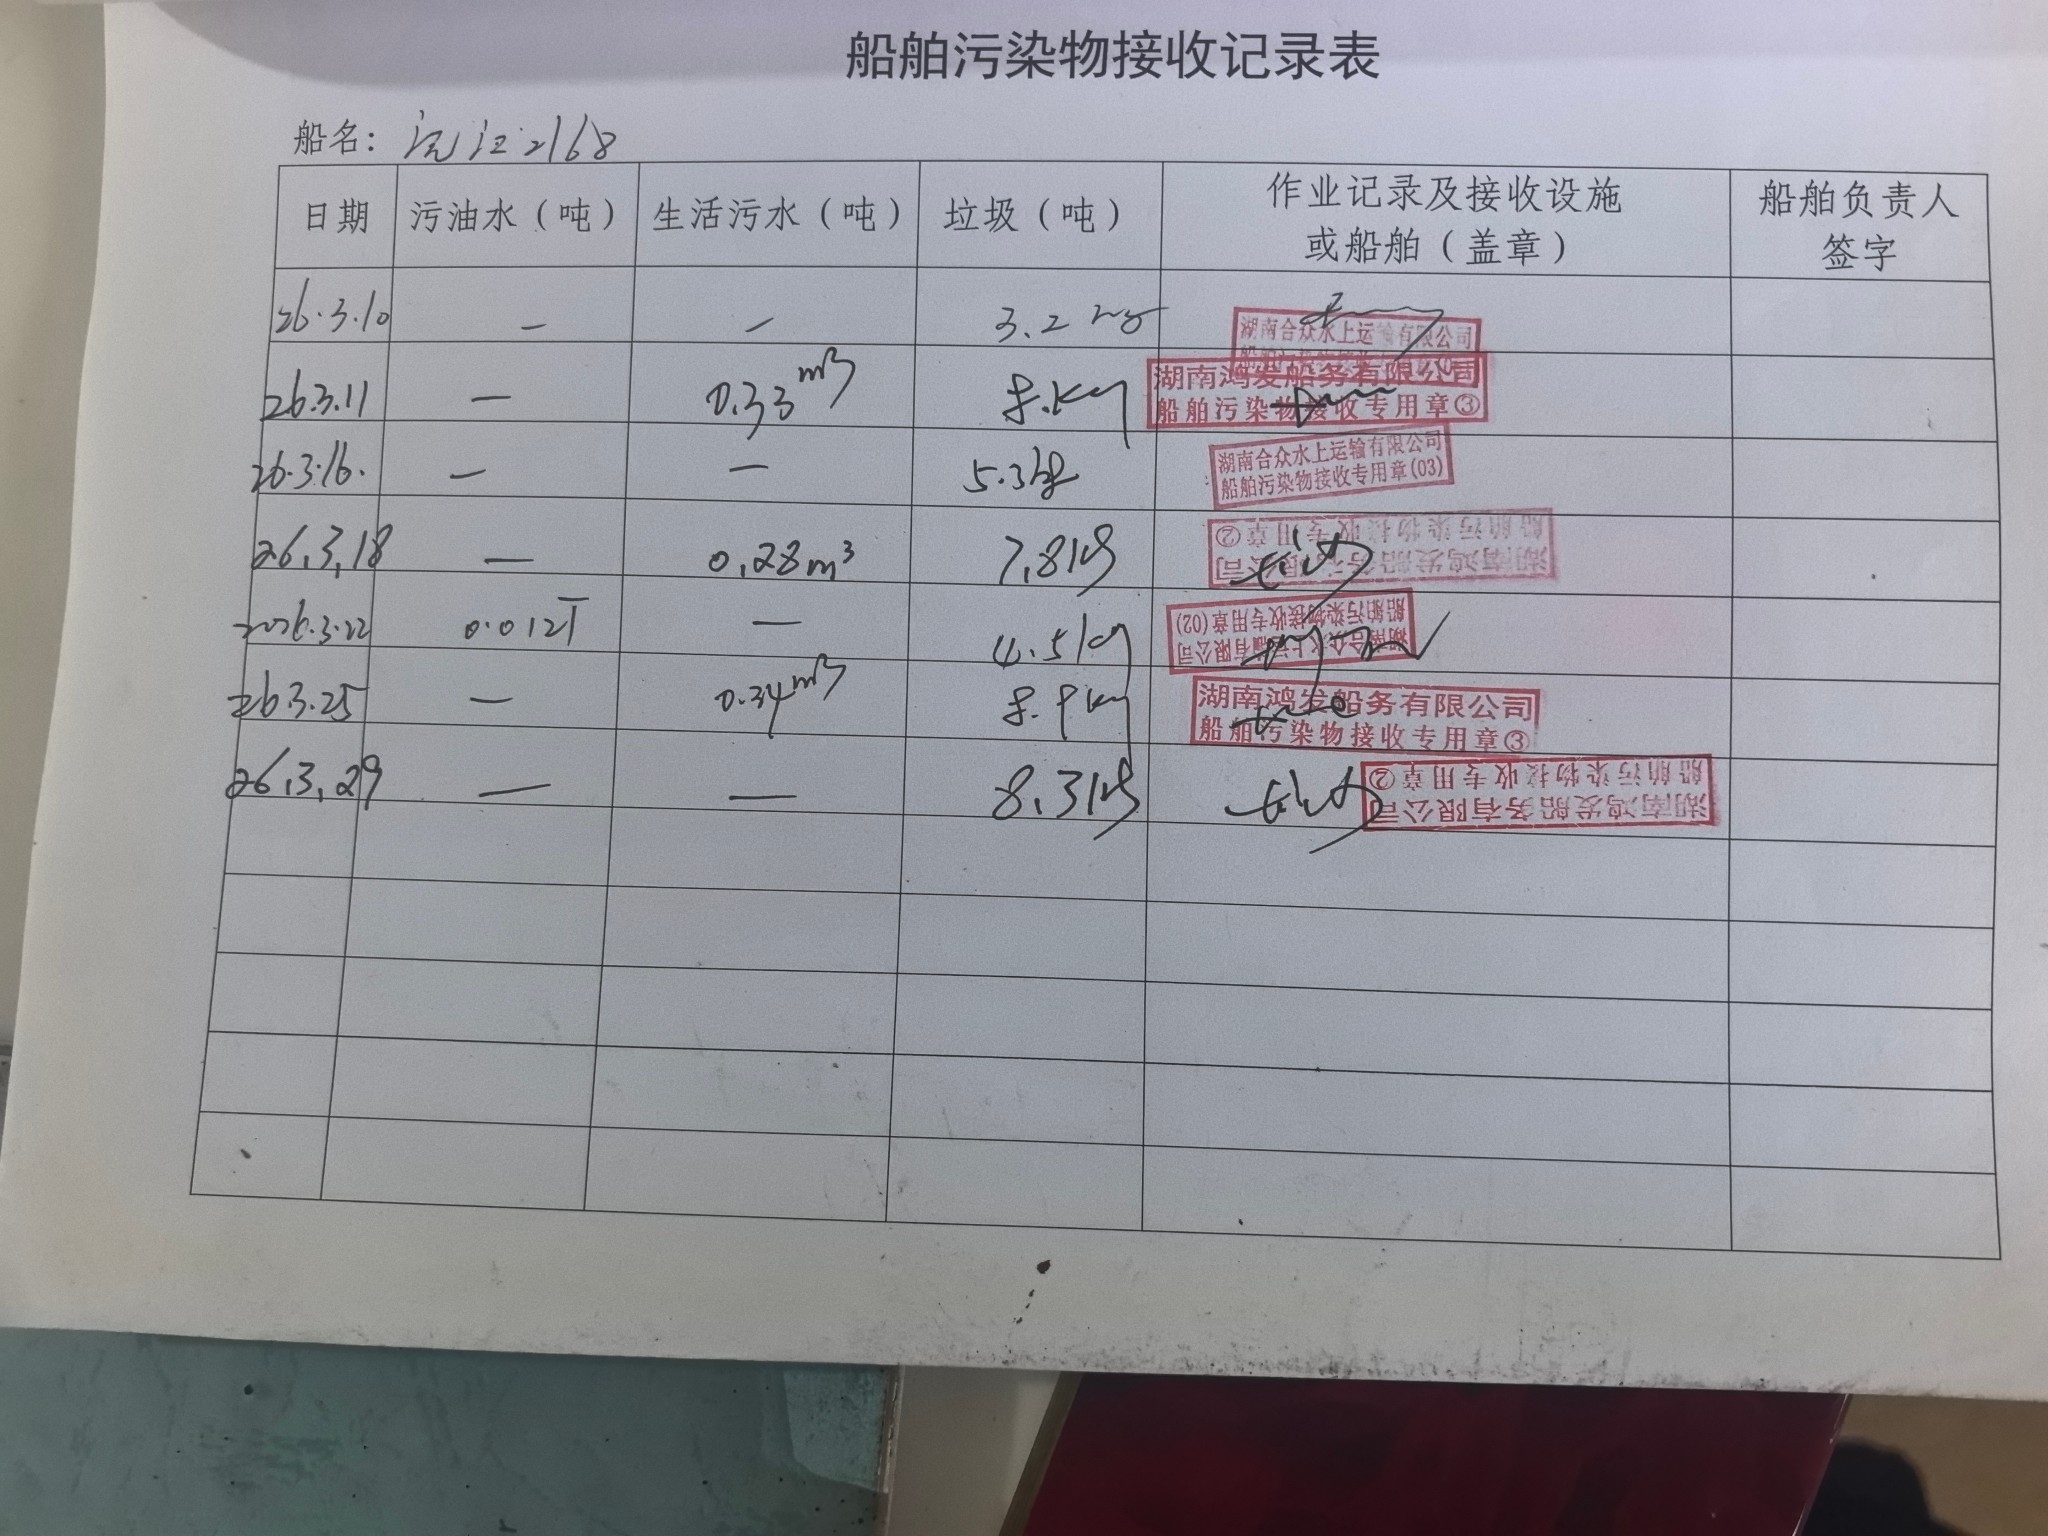 船舶污染物接收记录表
船名: 沅江2168
日期 污油水（吨） 生活污水（吨） 垃圾（吨） 作业记录及接收设施 船舶负责人
或船舶（盖章） 签字
26.3.10 — — 3.2 湖南合众水上运输有限公司
26.3.11 — 0.33m³ 8.kg 湖南鸿发船务有限公司
船舶污染物接收专用章③
26.3.16. — — 5.3kg 湖南合众水上运输有限公司
船舶污染物接收专用章(03)
26,3,18 — 0,28m³ 7,8kg 湖南鸿发船务有限公司
船舶污染物接收专用章②
2026.3.22 0.012T — 4.5kg 湖南合众水上运输有限公司
船舶污染物接收专用章(02)
26 3.25 — 0.34m³ 8.9kg 湖南鸿发船务有限公司
船舶污染物接收专用章③
26,3,29 — — 8,3kg 湖南鸿发船务有限公司
船舶污染物接收专用章②